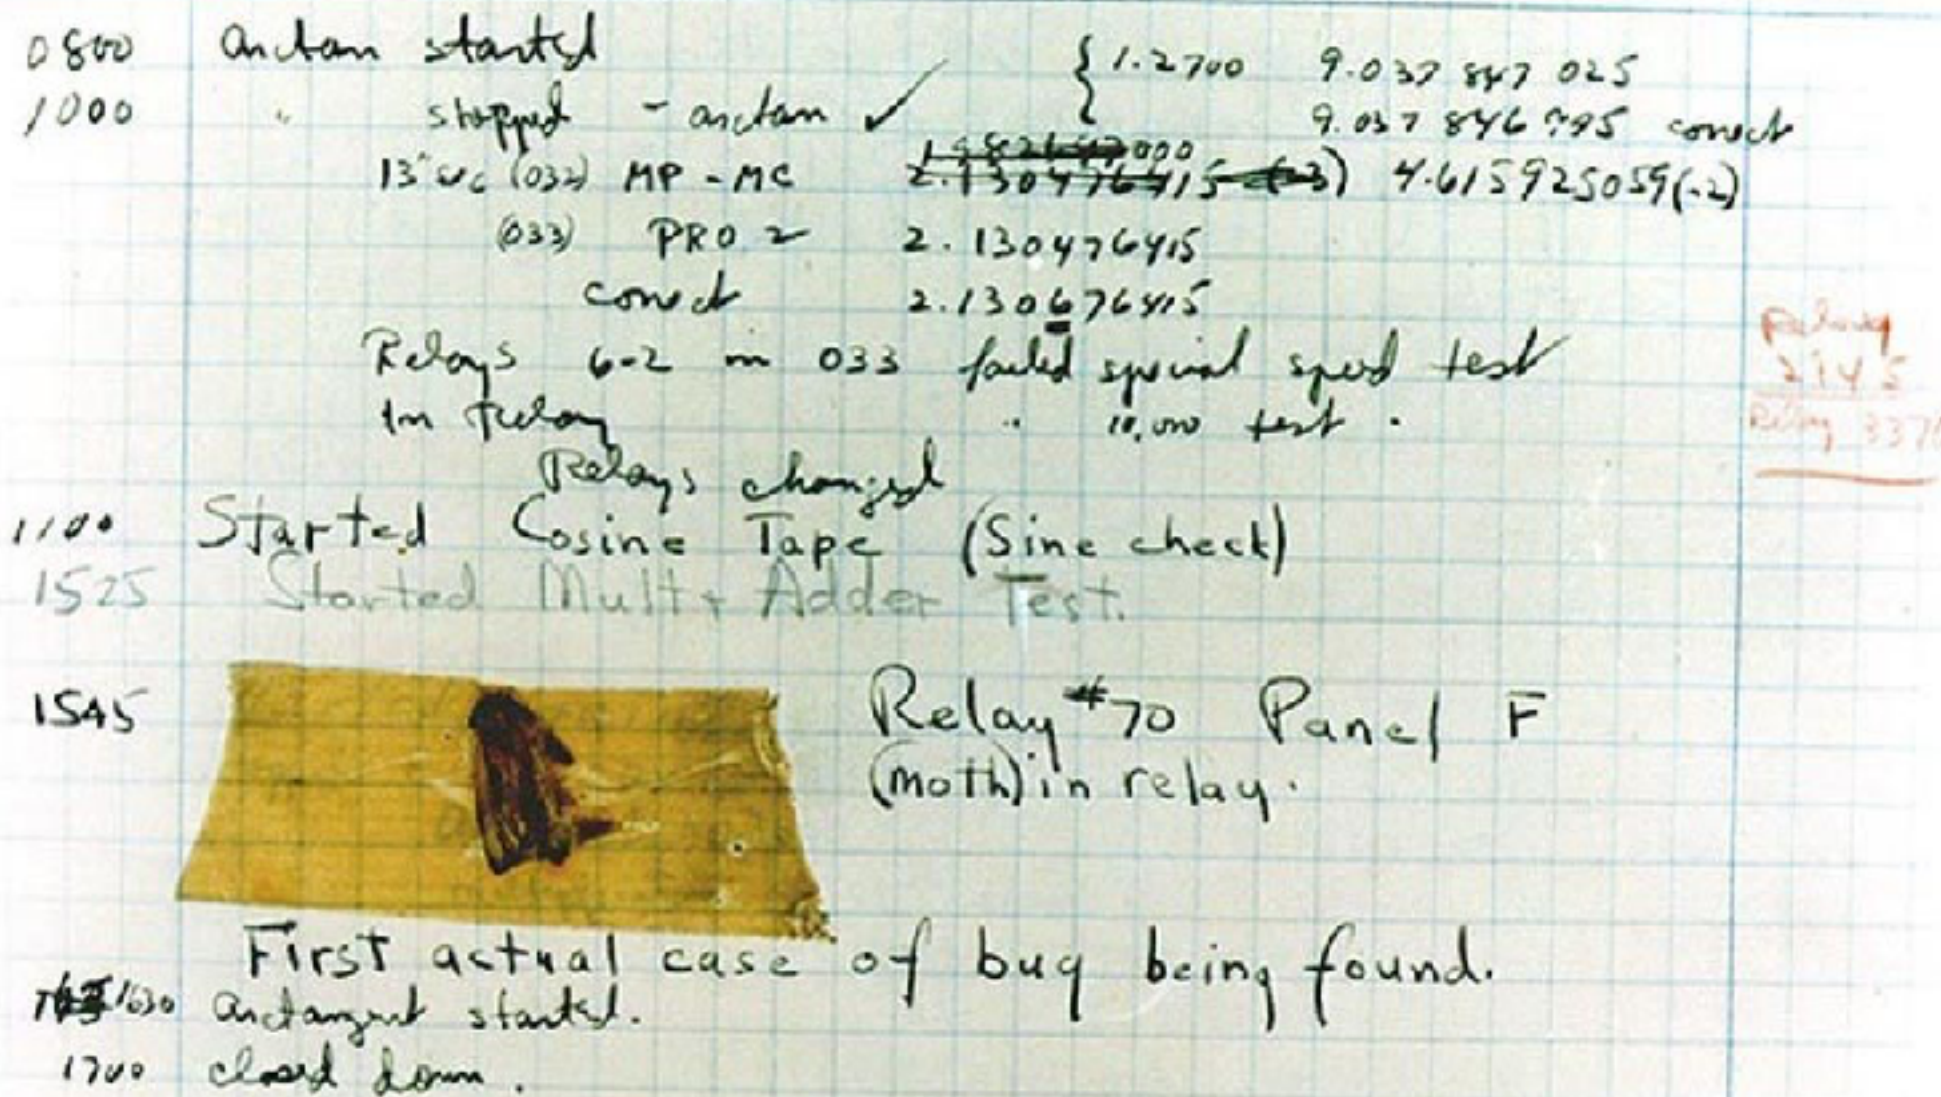 0800 arctan started { 1.2700 9.037 847 025
1000 " stopped - arctan ✓ { 9.037 846 795 correct
13"uc (032) MP - MC 2.130476415 (-3) 4.615925059(-2)
(033) PRO 2 2.130476415
correct 2.130676415
Relays 6-2 in 033 failed special speed test
In Relay " 10,000 test .
Relays changed
Relay
2145
Relay 3370
1100 Started Cosine Tape (Sine check)
1525 Started Mult + Adder Test.
1545 Relay #70 Panel F
(moth) in relay.
First actual case of bug being found.
1630 arctangent started.
1700 closed down.